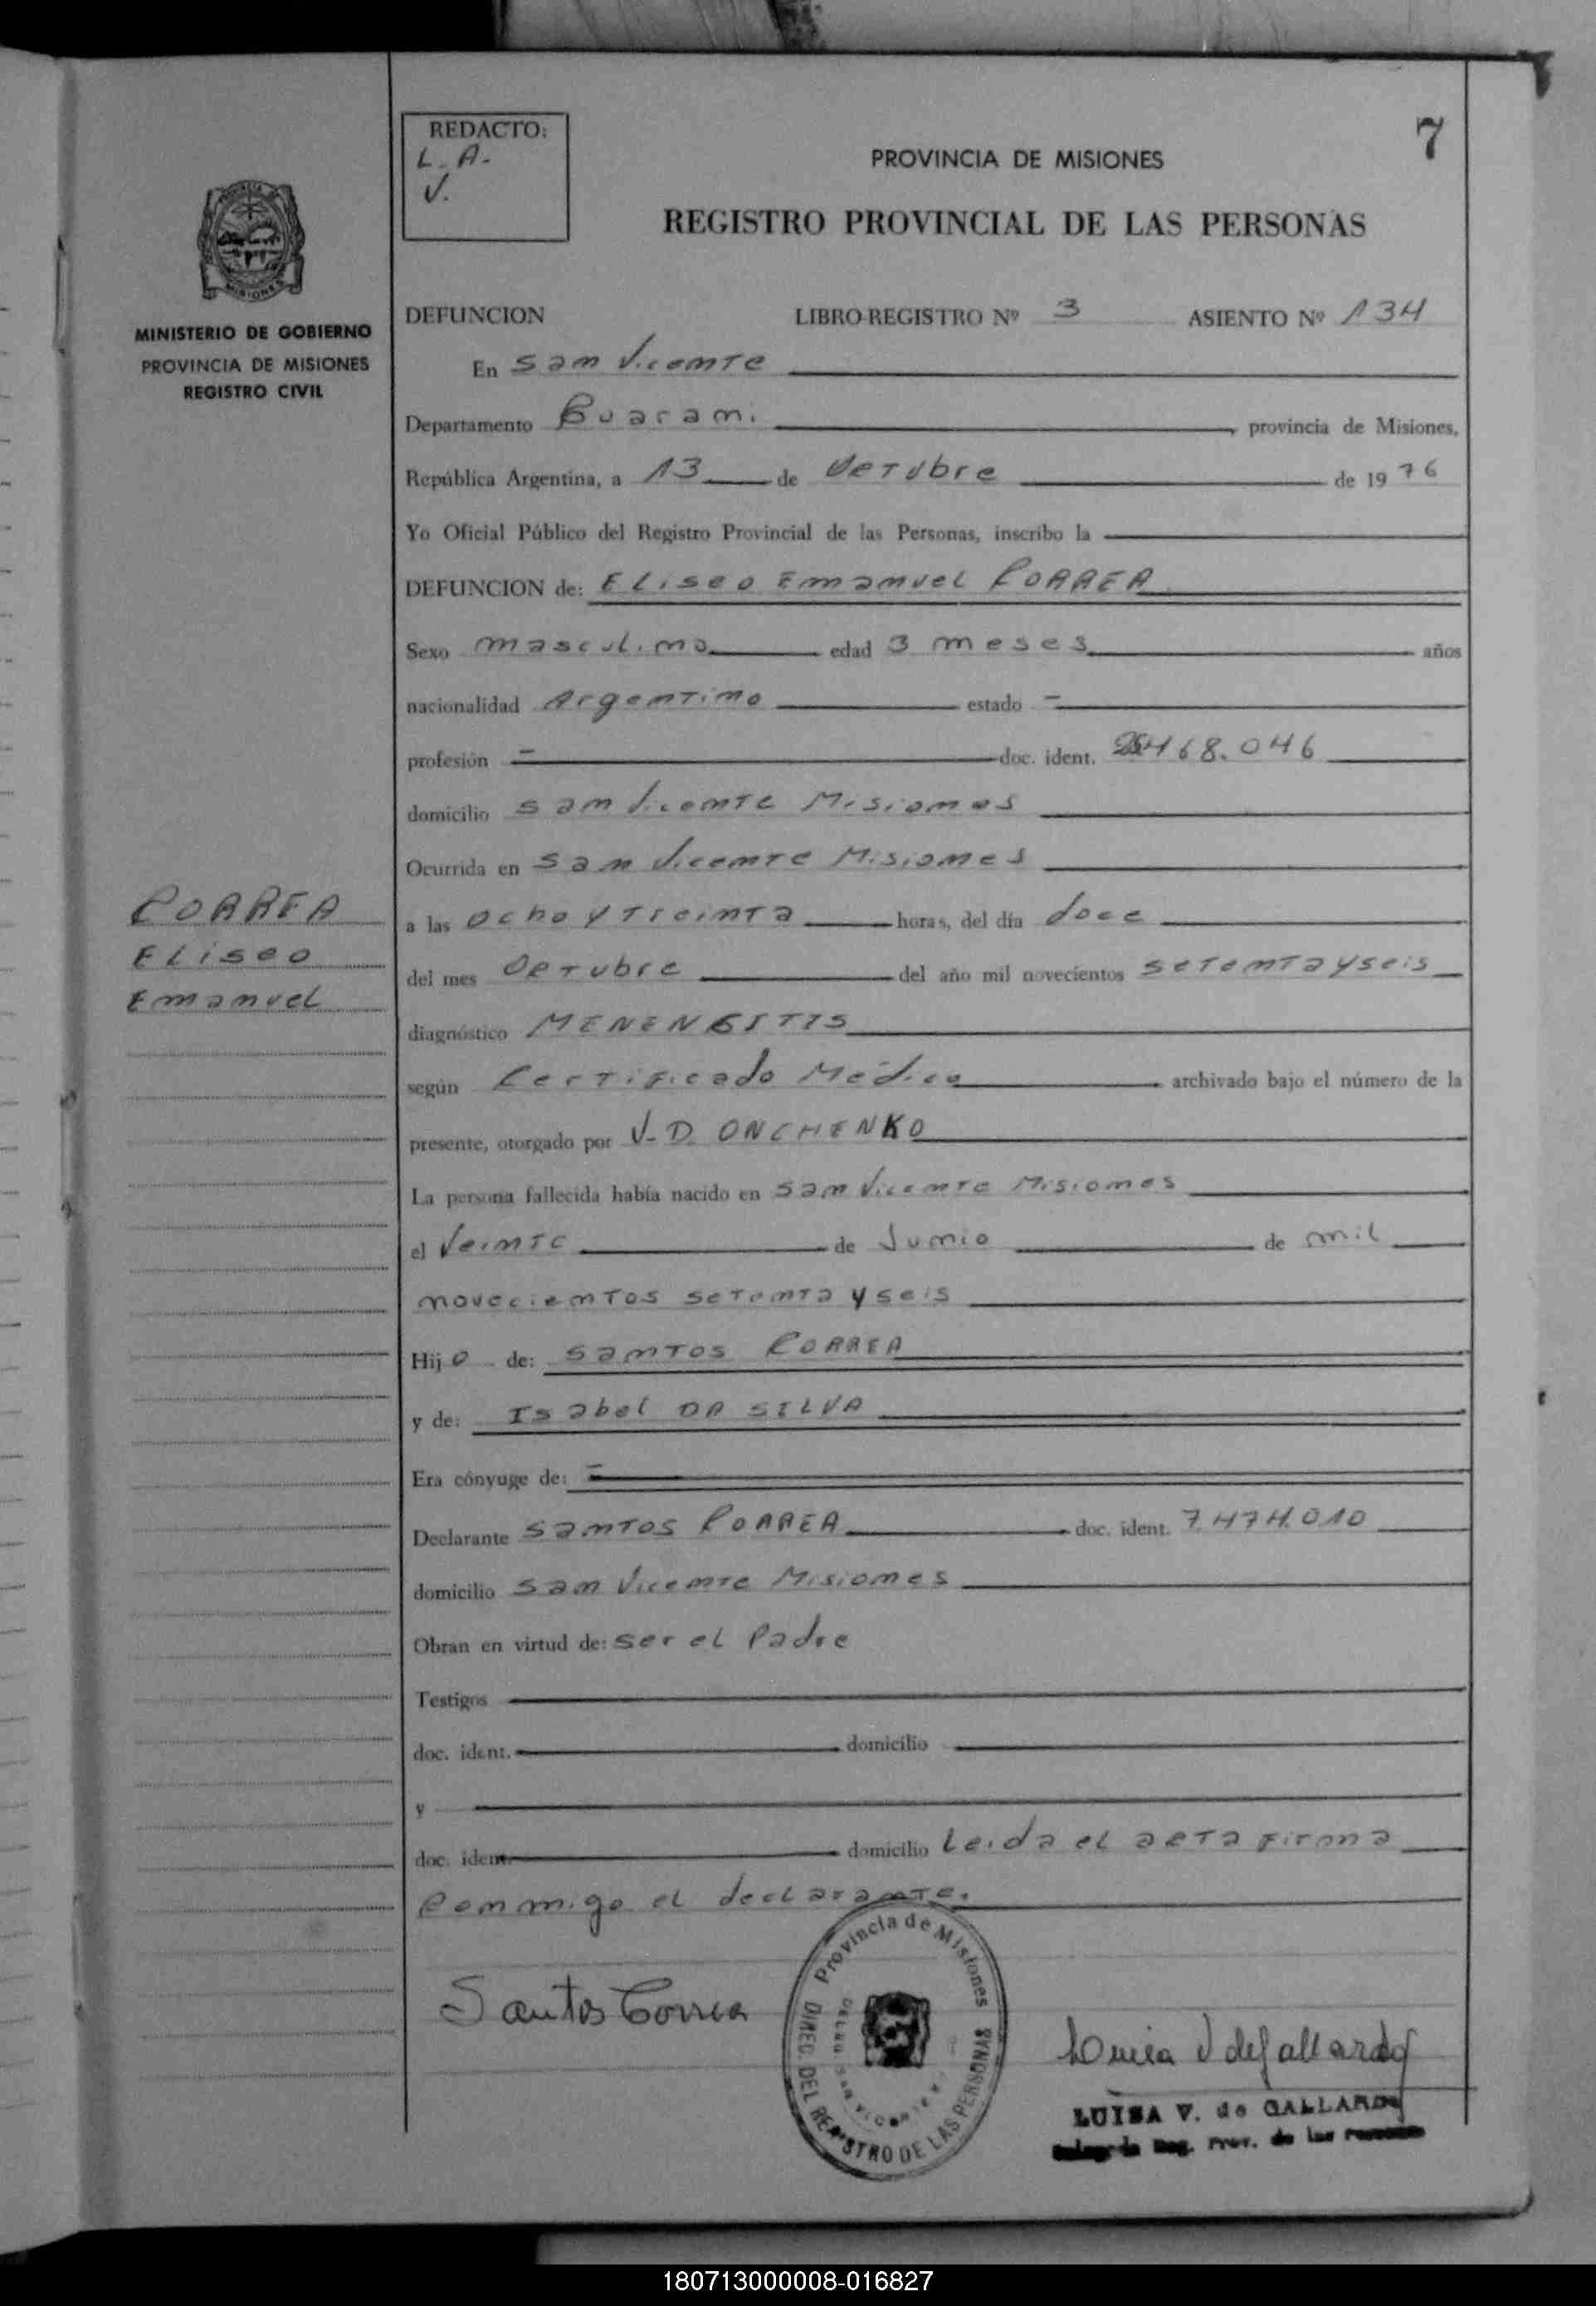 REDACTO:
L. A.
V.
7
PROVINCIA DE MISIONES
REGISTRO PROVINCIAL DE LAS PERSONAS
MISIONES
MINISTERIO DE GOBIERNO
PROVINCIA DE MISIONES
REGISTRO CIVIL
DEFUNCION LIBRO REGISTRO Nº 3 ASIENTO Nº 134
En San Vicente
Departamento Guarani provincia de Misiones,
República Argentina, a 13 de Octubre de 1976
Yo Oficial Público del Registro Provincial de las Personas, inscribo la
DEFUNCION de: Eliseo Emanuel CORREA
Sexo masculino edad 3 meses años
nacionalidad Argentino estado -
profesión - doc. ident. 468.046
domicilio San Vicente Misiones
Ocurrida en San Vicente Misiones
CORREA
Eliseo
Emanuel
a las ocho y treinta horas, del día doce
del mes Octubre del año mil novecientos setenta y seis
diagnóstico MENENGITIS
según Certificado Médico archivado bajo el número de la
presente, otorgado por V. D. ONCHENKO
La persona fallecida había nacido en San Vicente Misiones
el Veinte de Junio de mil
novecientos setenta y seis
Hijo de: Santos CORREA
y de: Isabel DA SILVA
Era cónyuge de: -
Declarante Santos CORREA doc. ident. 7.474.010
domicilio San Vicente Misiones
Obran en virtud de: ser el Padre
Testigos
doc. ident. domicilio
y
doc. ident. domicilio Leida el acta firma
Conmigo el declarante.
Santos Correa
Provincia de Misiones
DIREC. DEL REGISTRO DE LAS PERSONAS
SAN VICENTE
Luisa V de Gallardo
LUISA V. de GALLARDO
Reg. Prov. de las Personas
180713000008-016827